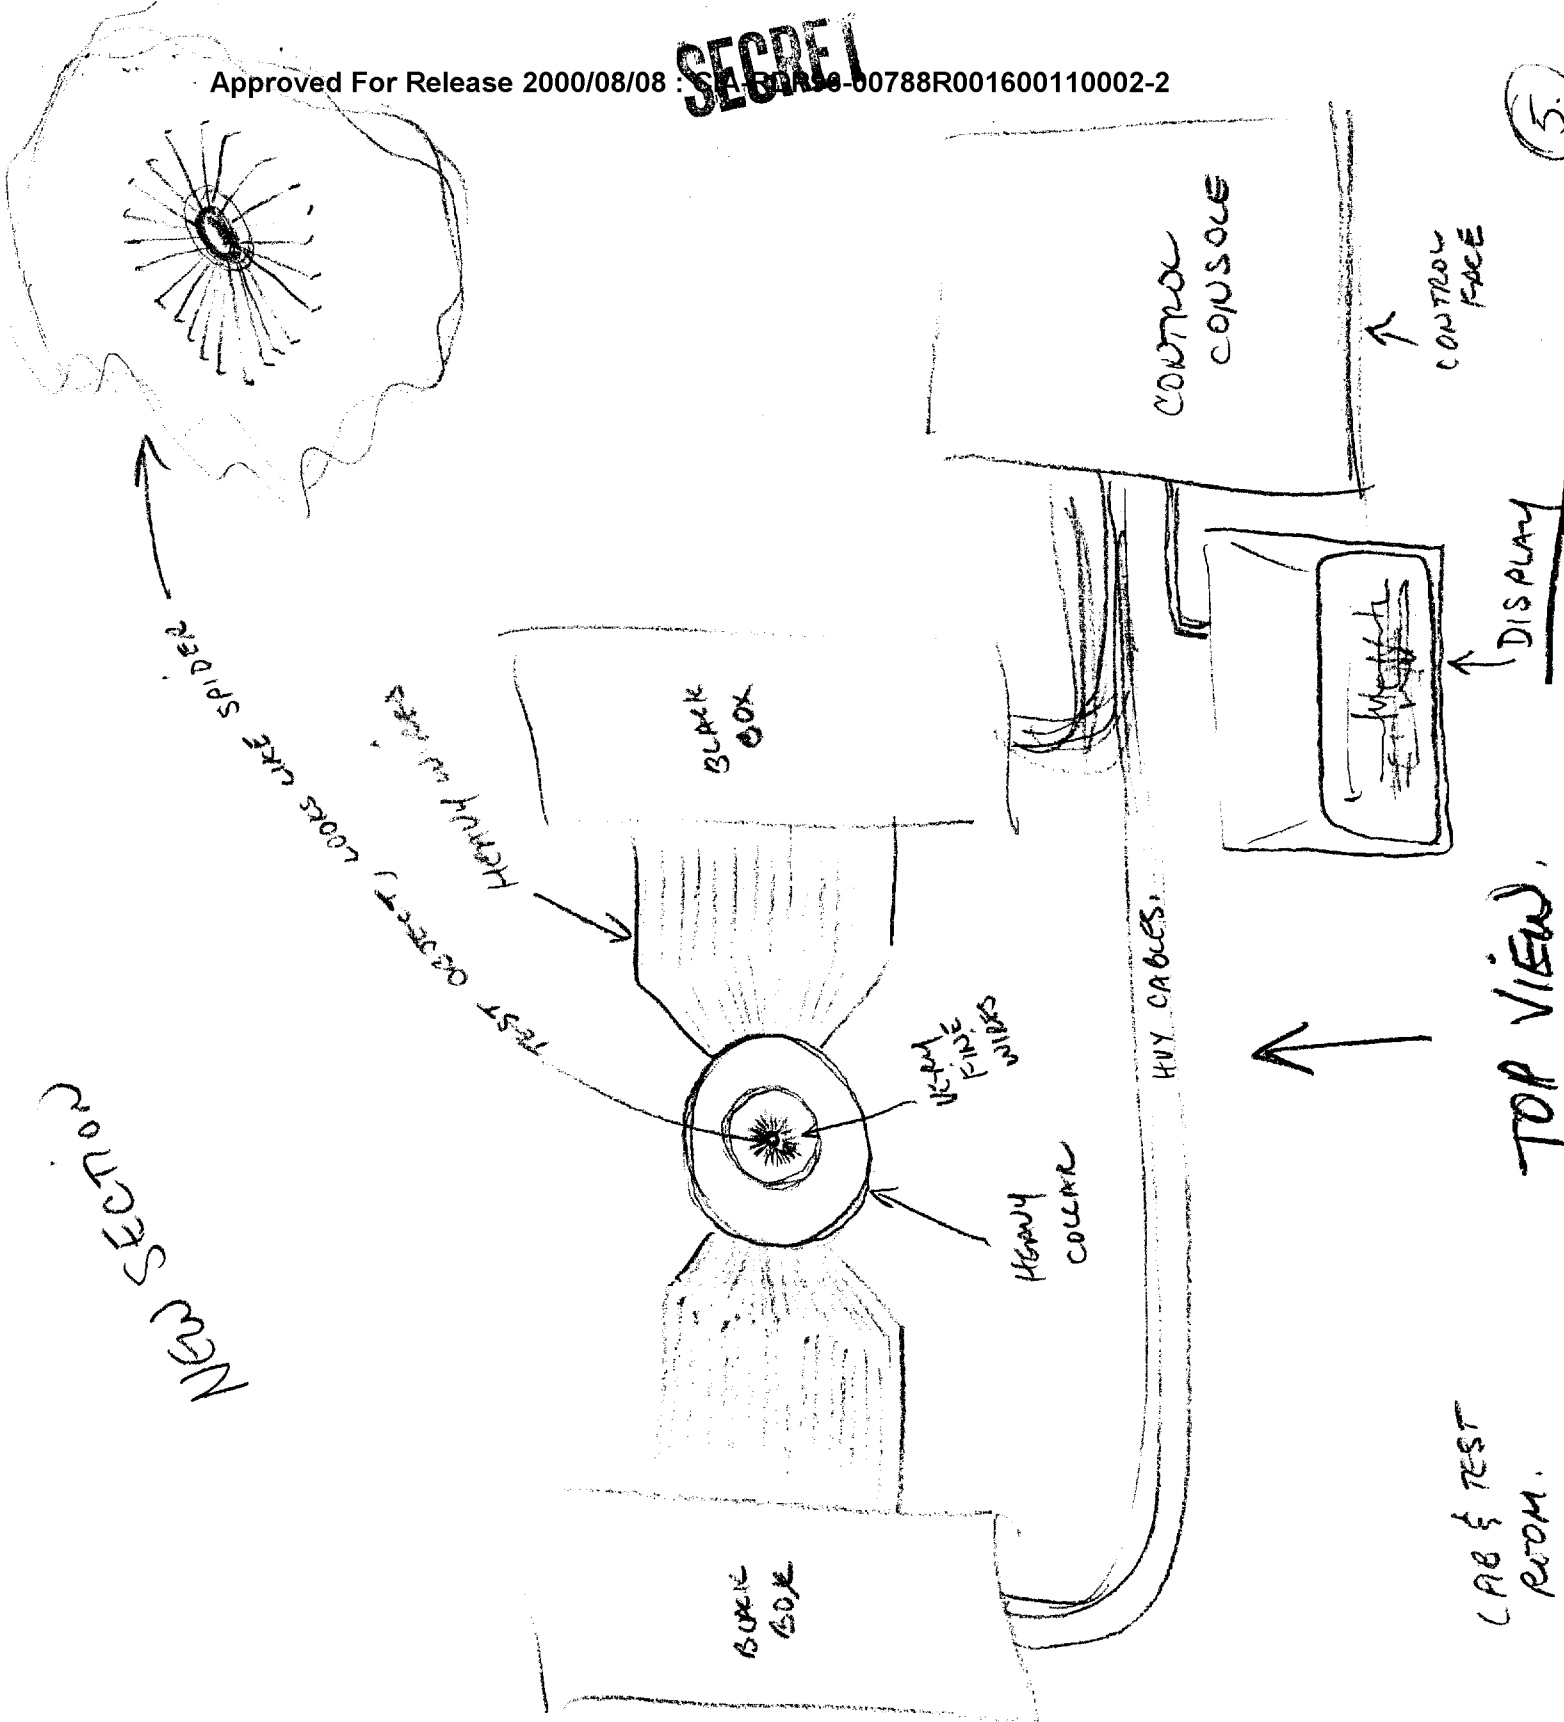 SECRET
Approved For Release 2000/08/08 : CIA-RDP96-00788R001600110002-2
5.
NEW SECTION
TEST OBJECT, LOOKS LIKE SPIDER
HEAVY WIRES
BLACK
BOX
CONTROL
CONSOLE
CONTROL
FACE
DISPLAY
VERY
FINE
WIRES
HEAVY
COLLAR
HVY CABLES.
BLACK
BOX
TOP VIEW.
LAB & TEST
ROOM.